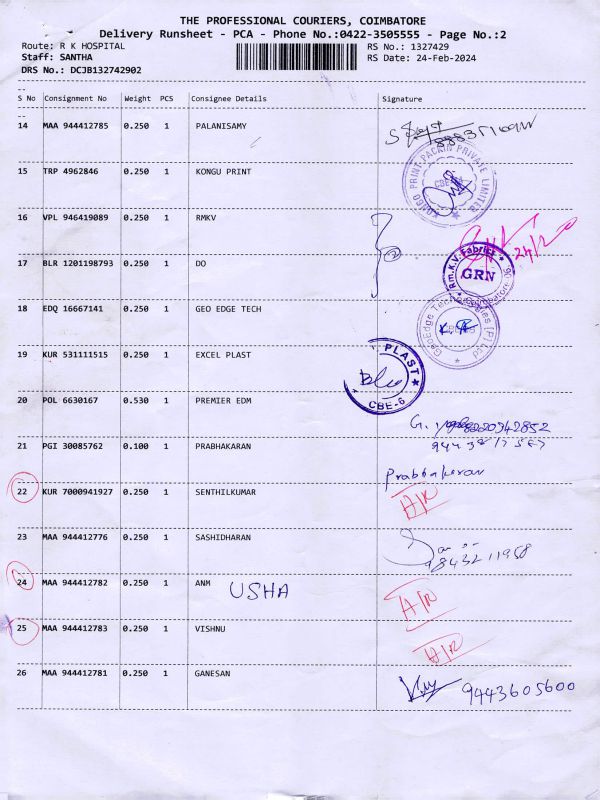 THE PROFESSIONAL COURIERS, COIMBATORE
Delivery Runsheet - PCA - Phone No.:0422-3505555 - Page No.:2
Route: R K HOSPITAL RS No.: 1327429
Staff: SANTHA RS Date: 24-Feb-2024
DRS No.: DCJB132742902
S No Consignment No Weight PCS Consignee Details Signature
14 MAA 944412785 0.250 1 PALANISAMY
15 TRP 4962846 0.250 1 KONGU PRINT
PRINT-PACKIN PRIVATE LIMITED
16 VPL 946419089 0.250 1 RMKV
24/2
Rm.K.V. Fabrics
GRN
17 BLR 1201198793 0.250 1 DO
18 EDQ 16667141 0.250 1 GEO EDGE TECH
19 KUR 531111515 0.250 1 EXCEL PLAST
PLAST
CBE-6
20 POL 6630167 0.530 1 PREMIER EDM
21 PGI 30085762 0.100 1 PRABHAKARAN
Prabhakaran
22 KUR 7000941927 0.250 1 SENTHILKUMAR
23 MAA 944412776 0.250 1 SASIDHARAN
843211958
24 MAA 944412782 0.250 1 ANM USHA
25 MAA 944412783 0.250 1 VISHNU
26 MAA 944412781 0.250 1 GANESAN
9443605600